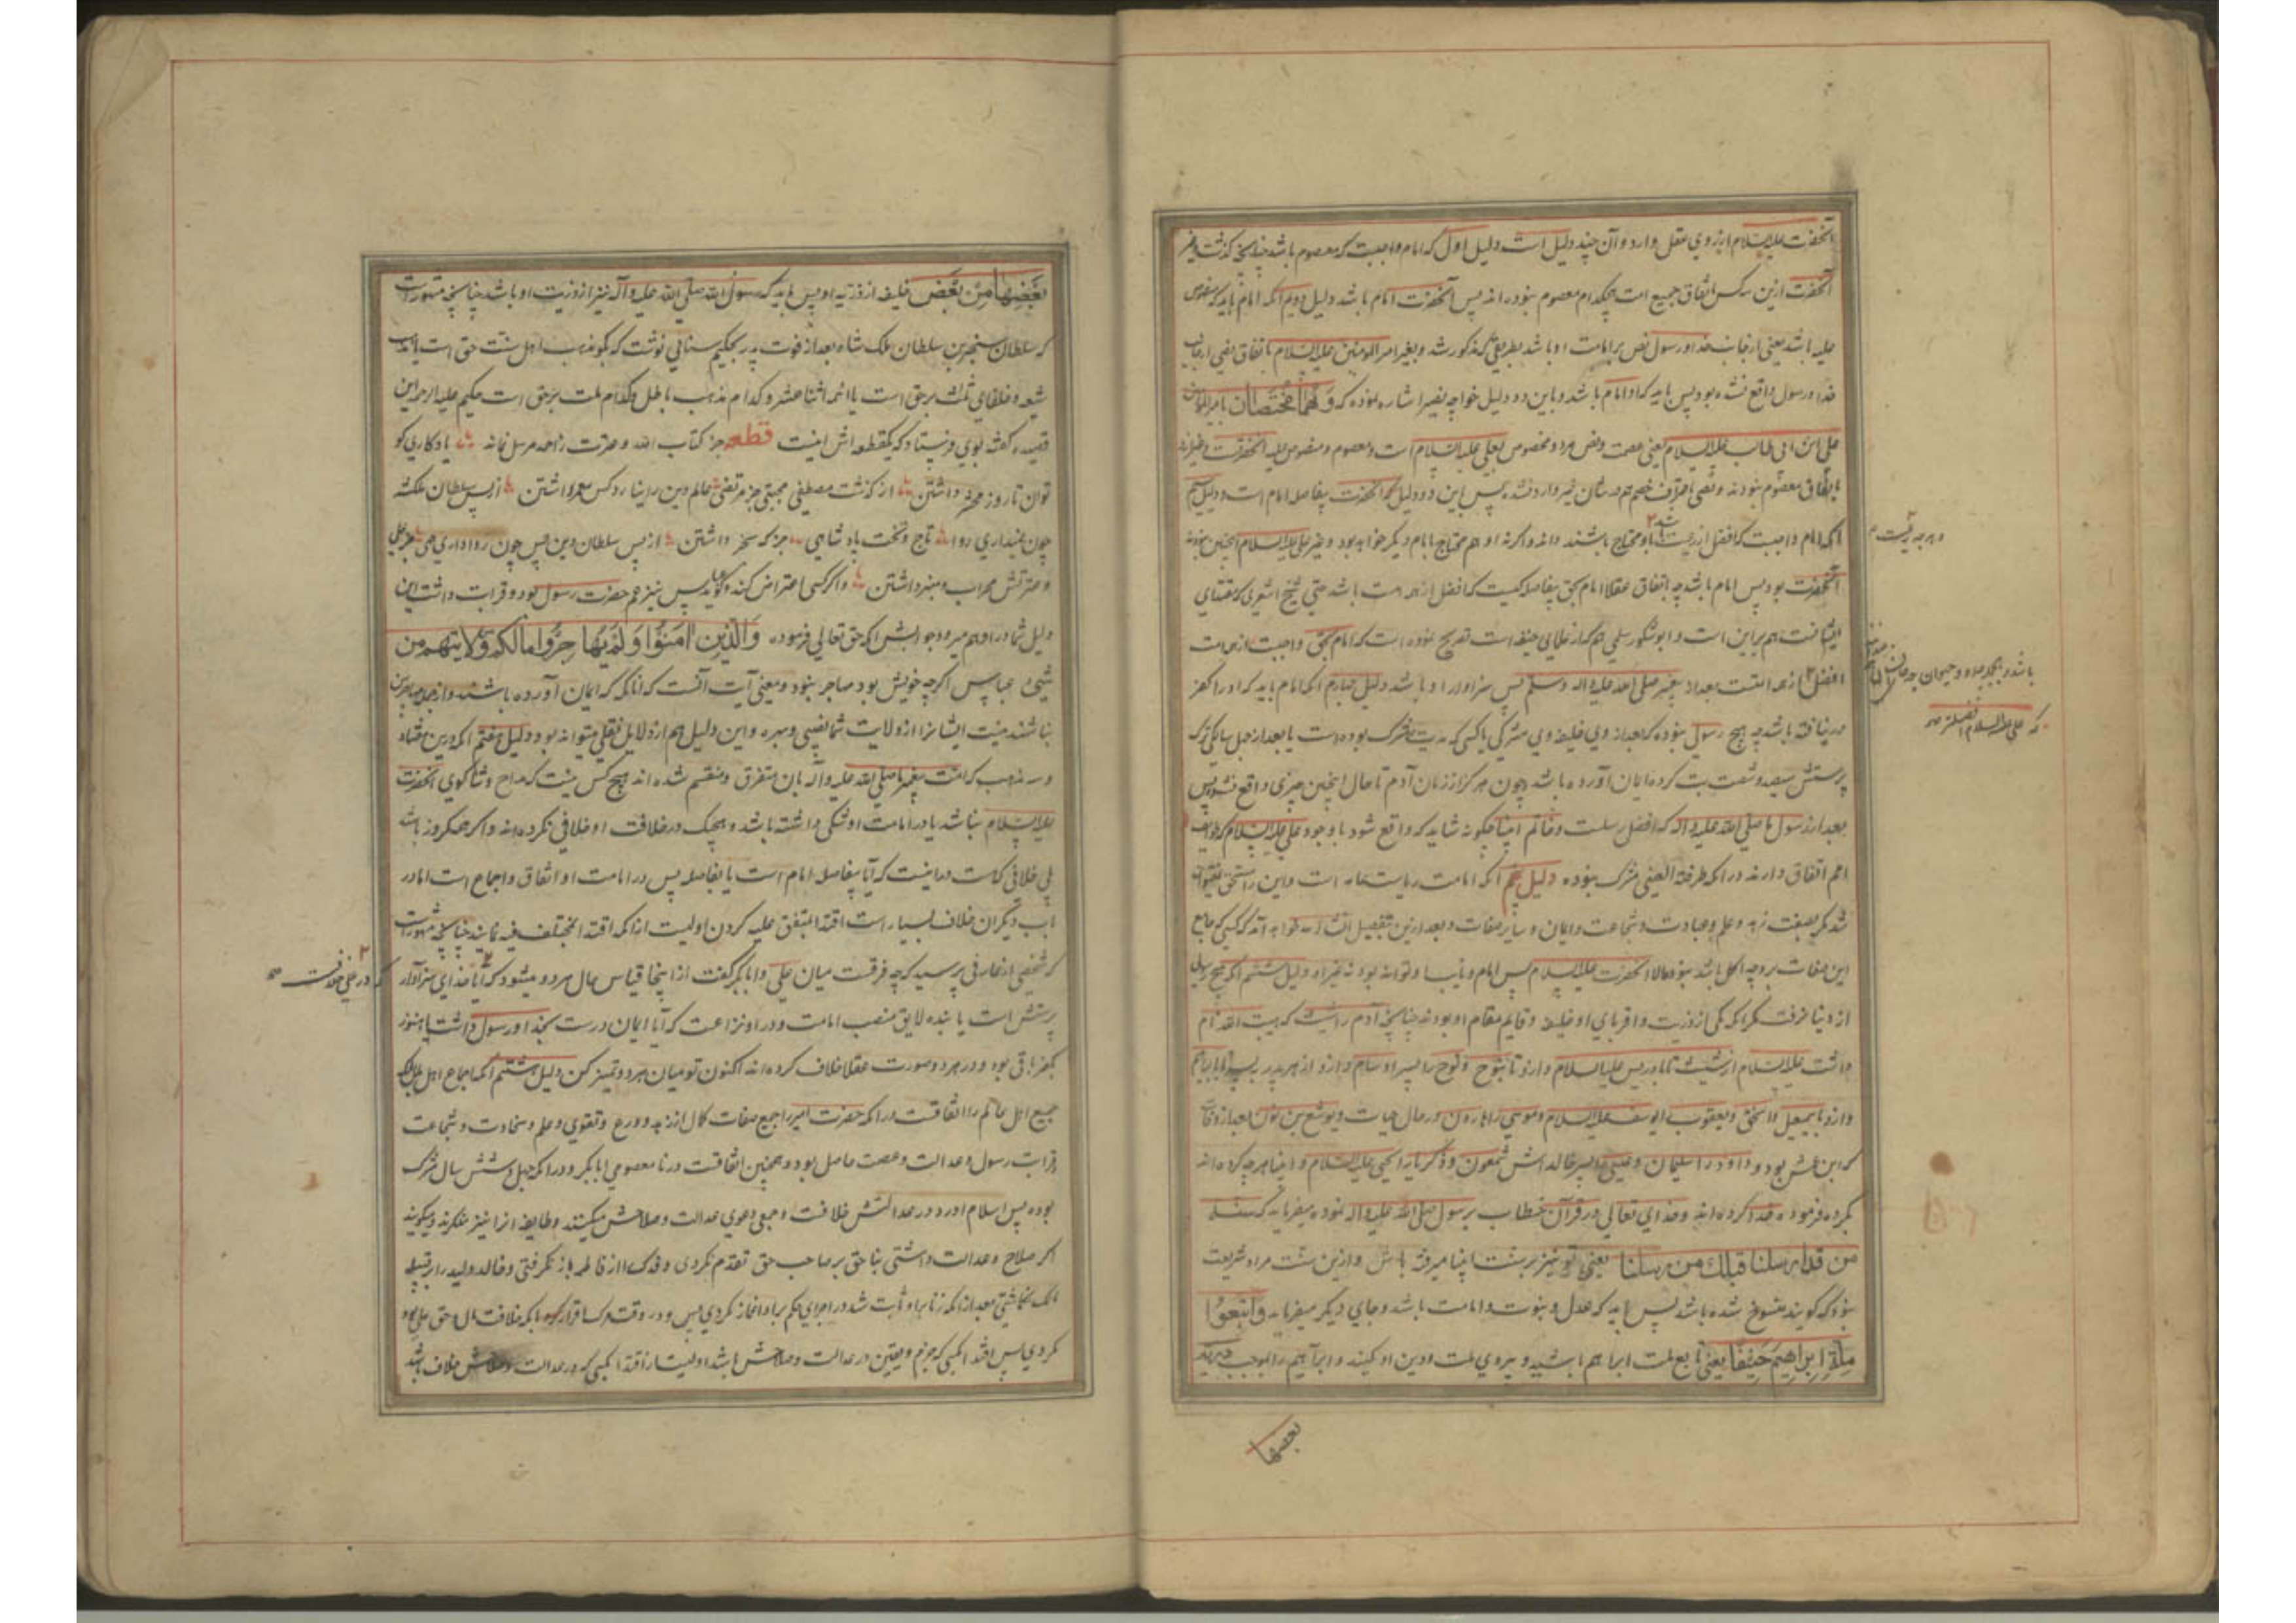 آنحضرت علیه السلام از روی عقل وارد و آن چند دلیل است دلیل اول که امام واجبست که معصوم باشد چنانچه گذشت و غیر
آنحضرت ازین سه کس باتفاق جمیع امت هیچکدام معصوم نبودراند پس آنحضرت امام باشد دلیل دویم آنکه امام باید که منصوص
علیه باشد یعنی ازجانب خدا و رسول نص بر امامت او باشد بطریقی که مذکور شد و بغیر امیر المومنین علیه السلام باتفاق نصی ازجانب
خدا و رسول واقع نشده بود پس باید که او امام باشد و باین دو دلیل خواجه نصیر اشاره نموده که وَهُمَا مُختَصّان بامیرالمومنین
علی ابن ابی طالب علیه السلام یعنی عصمت و نص هردو مخصوص بعلی علیه السلام است و معصوم و منصوص علیه آنحضرتست و غیر او نه
باتفاق معصوم نبودند و نصی باعتراف خصم هم در شان غیر وارد نشد پس این دو دلیل هم آنحضرت بیفاصله امام است و دلیل سیم
آنکه امام واجبست که افضل از رعیت باشد تا باو محتاج باشند دانه واگرنه او هم محتاج بامام دیگر خواهد بود و غیر علی علیه السلام اینچنین نبودند
آنحضرت بود پس امام باشد چه اتفاق عقلا امام بحق بیفاصله کیست که افضل از همه امت باشد حتی شیخ اشعری که مقتدای
ایشانست هم برین است و ابوشکور سلمی هم که از علمای حنفیه است تصریح نموده است که امام بحق واجبست از همه امت
افضل از همه امتست بعداد پیغمبر صلی الله علیه و اله وسلم پس سزاوار او باشد دلیل چهارم آنکه امام باید که او را کفر
درنیافته باشد چه هیچ رسولی نبوده که بعداز وی خلیفه وی مشرکی یا کسی که مدت مشرک بوده است یا بعداز چهل سالگی ترک
پرستش سیصد و شصت بت کرده ایمان آورده باشد و چون هرگز از زمان آدم تا حال اینچنین چیزی واقع نشد پس
بعداز رسول ما صلی الله علیه واله که افضل رسلست و خاتم انبیا چگونه شاید که واقع شود با وجود علی علیه السلام که طوایف
امم اتفاق دارند در آنکه طرفة العینی مشرک نبوده دلیل پنجم آنکه امامت ریاست عامه است و این را مستحق نمیتواند
شد مگر بصفت زهد و علم و عبادت و شجاعت و ایمان و سایر صفات و بعد ازین بتفصیل انشا الله خواهد آمد که کسی که جامع
این صفات بر وجه اکمل باشد نبود الا آنحضرت علیه السلام پس امام و نایب او تواند بود نه غیر او دلیل ششم آنکه هیچ رسولی
از دنیا نرفت مگر آنکه یکی از ذریت و اقربای او خلیفه و قایم مقام او بودند چنانچه آدم را شیث که هبت الله نام
داشت علیه السلام از شیث تا بادریس علیه السلام و ازو تا بنوح و نوح را پسر او سام و ازو از هر پدر بپسر تا بابراهیم
و ازو باسمعیل و اسحق و یعقوب را یوسف علیه السلام و موسی را هارون در حال حیات و یوشع بن نون بعداز وفات
که ابن عمش بود و داود را سلیمان و عیسی را پسر خاله اش شمعون و ذکریا را یحیی علیه السلام و انبیا هرچه کرده اند
کرده فرموده خدا کرده اند و خدای تعالی در قرآن خطاب برسول صلی الله علیه واله نموده میفرماید که سنة
من قد ارسلنا قبلك من رسلنا یعنی تو نیز بر سنت انبیا میرفته باش و ازین سنت مراد شریعت
نبود که گویند منسوخ شده باشد پس باید که عدل و نبوت و امامت باشد و جای دیگر میفرماید واتبعوا
ملة ابراهیم حنیفا یعنی تابع ملت ابراهیم باشید و پیروی ملت و دین او کنید و ابراهیم را بموجب
بعضها
بعضها من بعض خلیفه از ذریه او پس باید که رسول الله صلی الله علیه وآله نیز از ذریت او باشد چنانچه مشهورست
که سلطان سنجر بن سلطان ملک شاه بعد از فوت پدر بحکیم سنائی نوشت که بگو مذهب اهل سنت حق است یا مذهب
شیعه و خلفای ثلثه برحق است یا ائمه اثنا عشر و کدام مذهب باطل و کدام ملت برحق است حکیم علیه الرحمه این
قصیده گفته بوی فرستاد که یکقطعه اش اینست قطعه جز کتاب الله و عترت ز احمد مرسل نماند یادگاری کو
توان تا روز محشر داشتن از گذشت مصطفی مجتبی جز مرتضی عالم دین را نیارد کس معمر داشتن از پس سلطان ملکشه
چون نمیداری روا تاج و تخت پادشاهی جز که سنجر داشتن از پس سلطان دین پس چون رواداری همی جز علی
و عترتش محراب و منبر داشتن واگر کسی اعتراض کند و گوید عباس نیز عم حضرت رسول بود و قرابت داشت این
دلیل شما در او هم میرود جوابش آنکه حق تعالی فرموده والذین امنوا ولم یهاجروا مالکم من ولایتهم من
شیئ عباس اگرچه خویش بود مهاجر نبود و معنی آیت آنست که آنانکه که ایمان آورده باشند و از جمله مهاجرین
نباشند نیست ایشانرا از ولایت شما نصیبی و بهره و این دلیل هم از دلایل نقلی میتواند بود دلیل هفتم آنکه درین هفتاد
و سه مذهب که امت پیغمبر ما صلی الله علیه واله بان متفرق و منقسم شده اند هیچ کس نیست که مداح و ثناگوی آنحضرت
علیه السلام نباشد یا در امامت او شکی داشته باشد و هیچیک در خلافت او خلافی نکرده اند واگر همگروز باشد
بلی خلافی که است در اینست که آیا بیفاصله امام است یا بفاصله پس در امامت او اتفاق و اجماع است امادر
باب دیگران خلاف بسیار است اقتدا بمتفق علیه کردن اولیست از آنکه اقتدا بمختلف فیه نمایند چنانچه مشهورست
که شخصی از عارفی پرسید که چه فرقست میان علی و ابابکر گفت از اینجا قیاس حال هردو میشود که آیا خدای سزاوار
پرستش است یا بنده لایق منصب امامت و در او نزاعست که آیا ایمان درست بخدا و رسول داشت یا هنوز
بکفر باقی بود و در هردو صورت عقلا خلاف کرده اند اکنون تو میان هردو تمیز کن دلیل هشتم آنکه اجماع اهل ملل
جمیع اهل عالم را اتفاقست در آنکه حضرت امیر را جمیع صفات کمال از زهد و ورع و تقوی و علم و سخاوت و شجاعت
و قرابت رسول و عدالت و عصمت حاصل بود و همچنین اتفاقست در نا معصومی ابابکر و در آنکه چهل و شش سال مشرک
بوده پس اسلام آورد و در عدالتش خلافست و جمعی دعوی عدالت و صلاحش میکنند و طایفه آنرا نیز منکرند و میگویند
اگر صلاح و عدالت داشتی بناحق بر صاحب حق تقدم نکردی و فدک را از فاطمه باز نگرفتی و خالد ولید را بر قبیله
مالک نگماشتی بعدازآنکه زنا بر او ثابت شد در اجرای حکم بر او اغماز نکردی پس و در وقت مرک اقرار بانکه خلافت مال و حق علی بود
نکردی پس اقتدا بکسی که جزم و یقین در عدالت و صلاحش باشد اولیست از اقتدا بکسی که در عدالت و صلاحش خلاف باشد